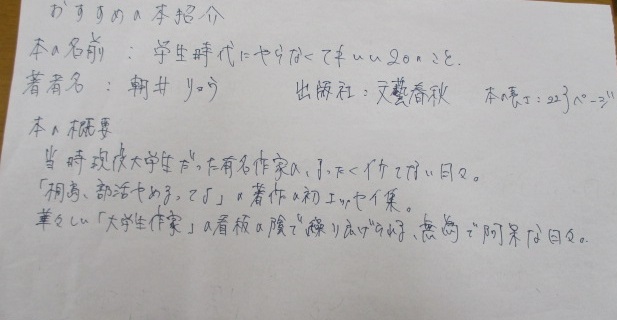 おすすめの本紹介
本の名前：学生時代にやらなくてもいい20のこと.
著者名：朝井リョウ 出版社：文藝春秋 本の長さ：223ページ
本の概要
当時現役大学生だった有名作家の、まったくイケてない日々。
「桐島、部活やめるってよ」の著作の初エッセイ集。
華々しい「大学生作家」の看板の陰で繰り広げられる、無為で阿呆な日々。